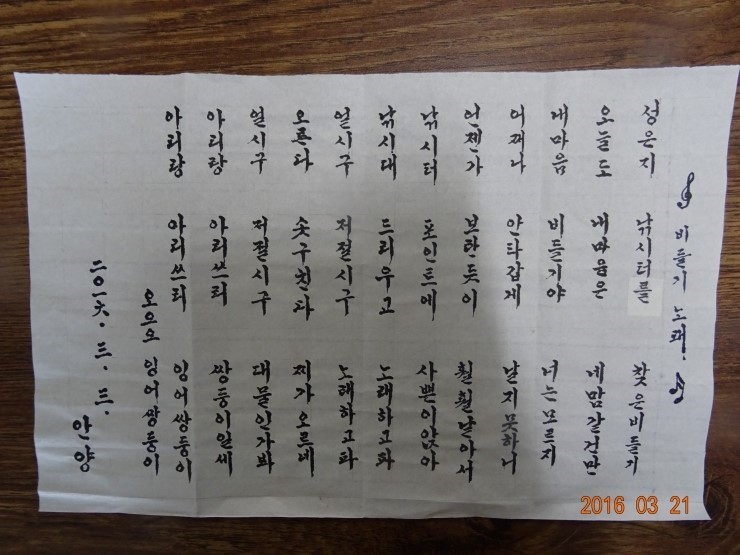 비들기 노래!
성은지 낚시터를 찾은비들기
오늘도 내마음은 네맘같건만
내마음 비들기야 너는모르지
어째나 안타깝게 날지못하니
언젠가 보란듯이 훨훨날아서
낚시터 포인트에 사뿐이앉아
낚시대 드리우고 노래하고파
얼시구 저절시구 노래하고파
오른다 솟구친다 찌가오르네
얼시구 저절시구 대물인가봐
아리랑 아리쓰리 쌍둥이일세
아리랑 아리쓰리 잉어쌍둥이
오으오 잉어쌍둥이
二〇一六.三.三.
안양
2016 03 21